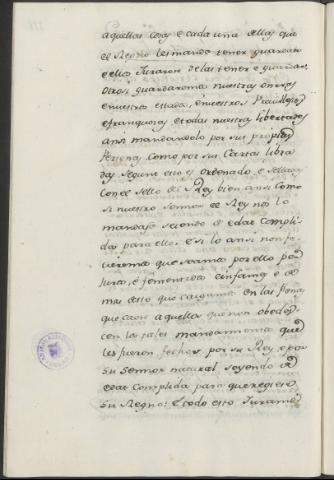 aquellas cosas e cada una dellas que
el Regno les mando tener guardar
e ellos Juraron de las tener e guardar
otrosi guardaremos nuestras onrras
e nuestro estado, e nuestros Privillejos
e franquezas, e todas nuestras libertades
ansi mandandolo por sus propias
Personas como por sus Cartas libra
das segunt esto es ordenado, e selladas
con el sello del Rey bien ansi como
si nuestro sennor el Rey nos lo
mandase seiendo de edat compli
da para ello. e si lo ansi non fi
cieremos que seamos por ello per
juros, e fementidos e infames e de
mas desto que caigamos en las penas
que caen aquellos que non obedes
cen los tales mandamientos que
les fueron fechos por su Rey, e por
su sennor natural seyendo de
edat complida para que regiese
su Regno: E todo esto Juramos